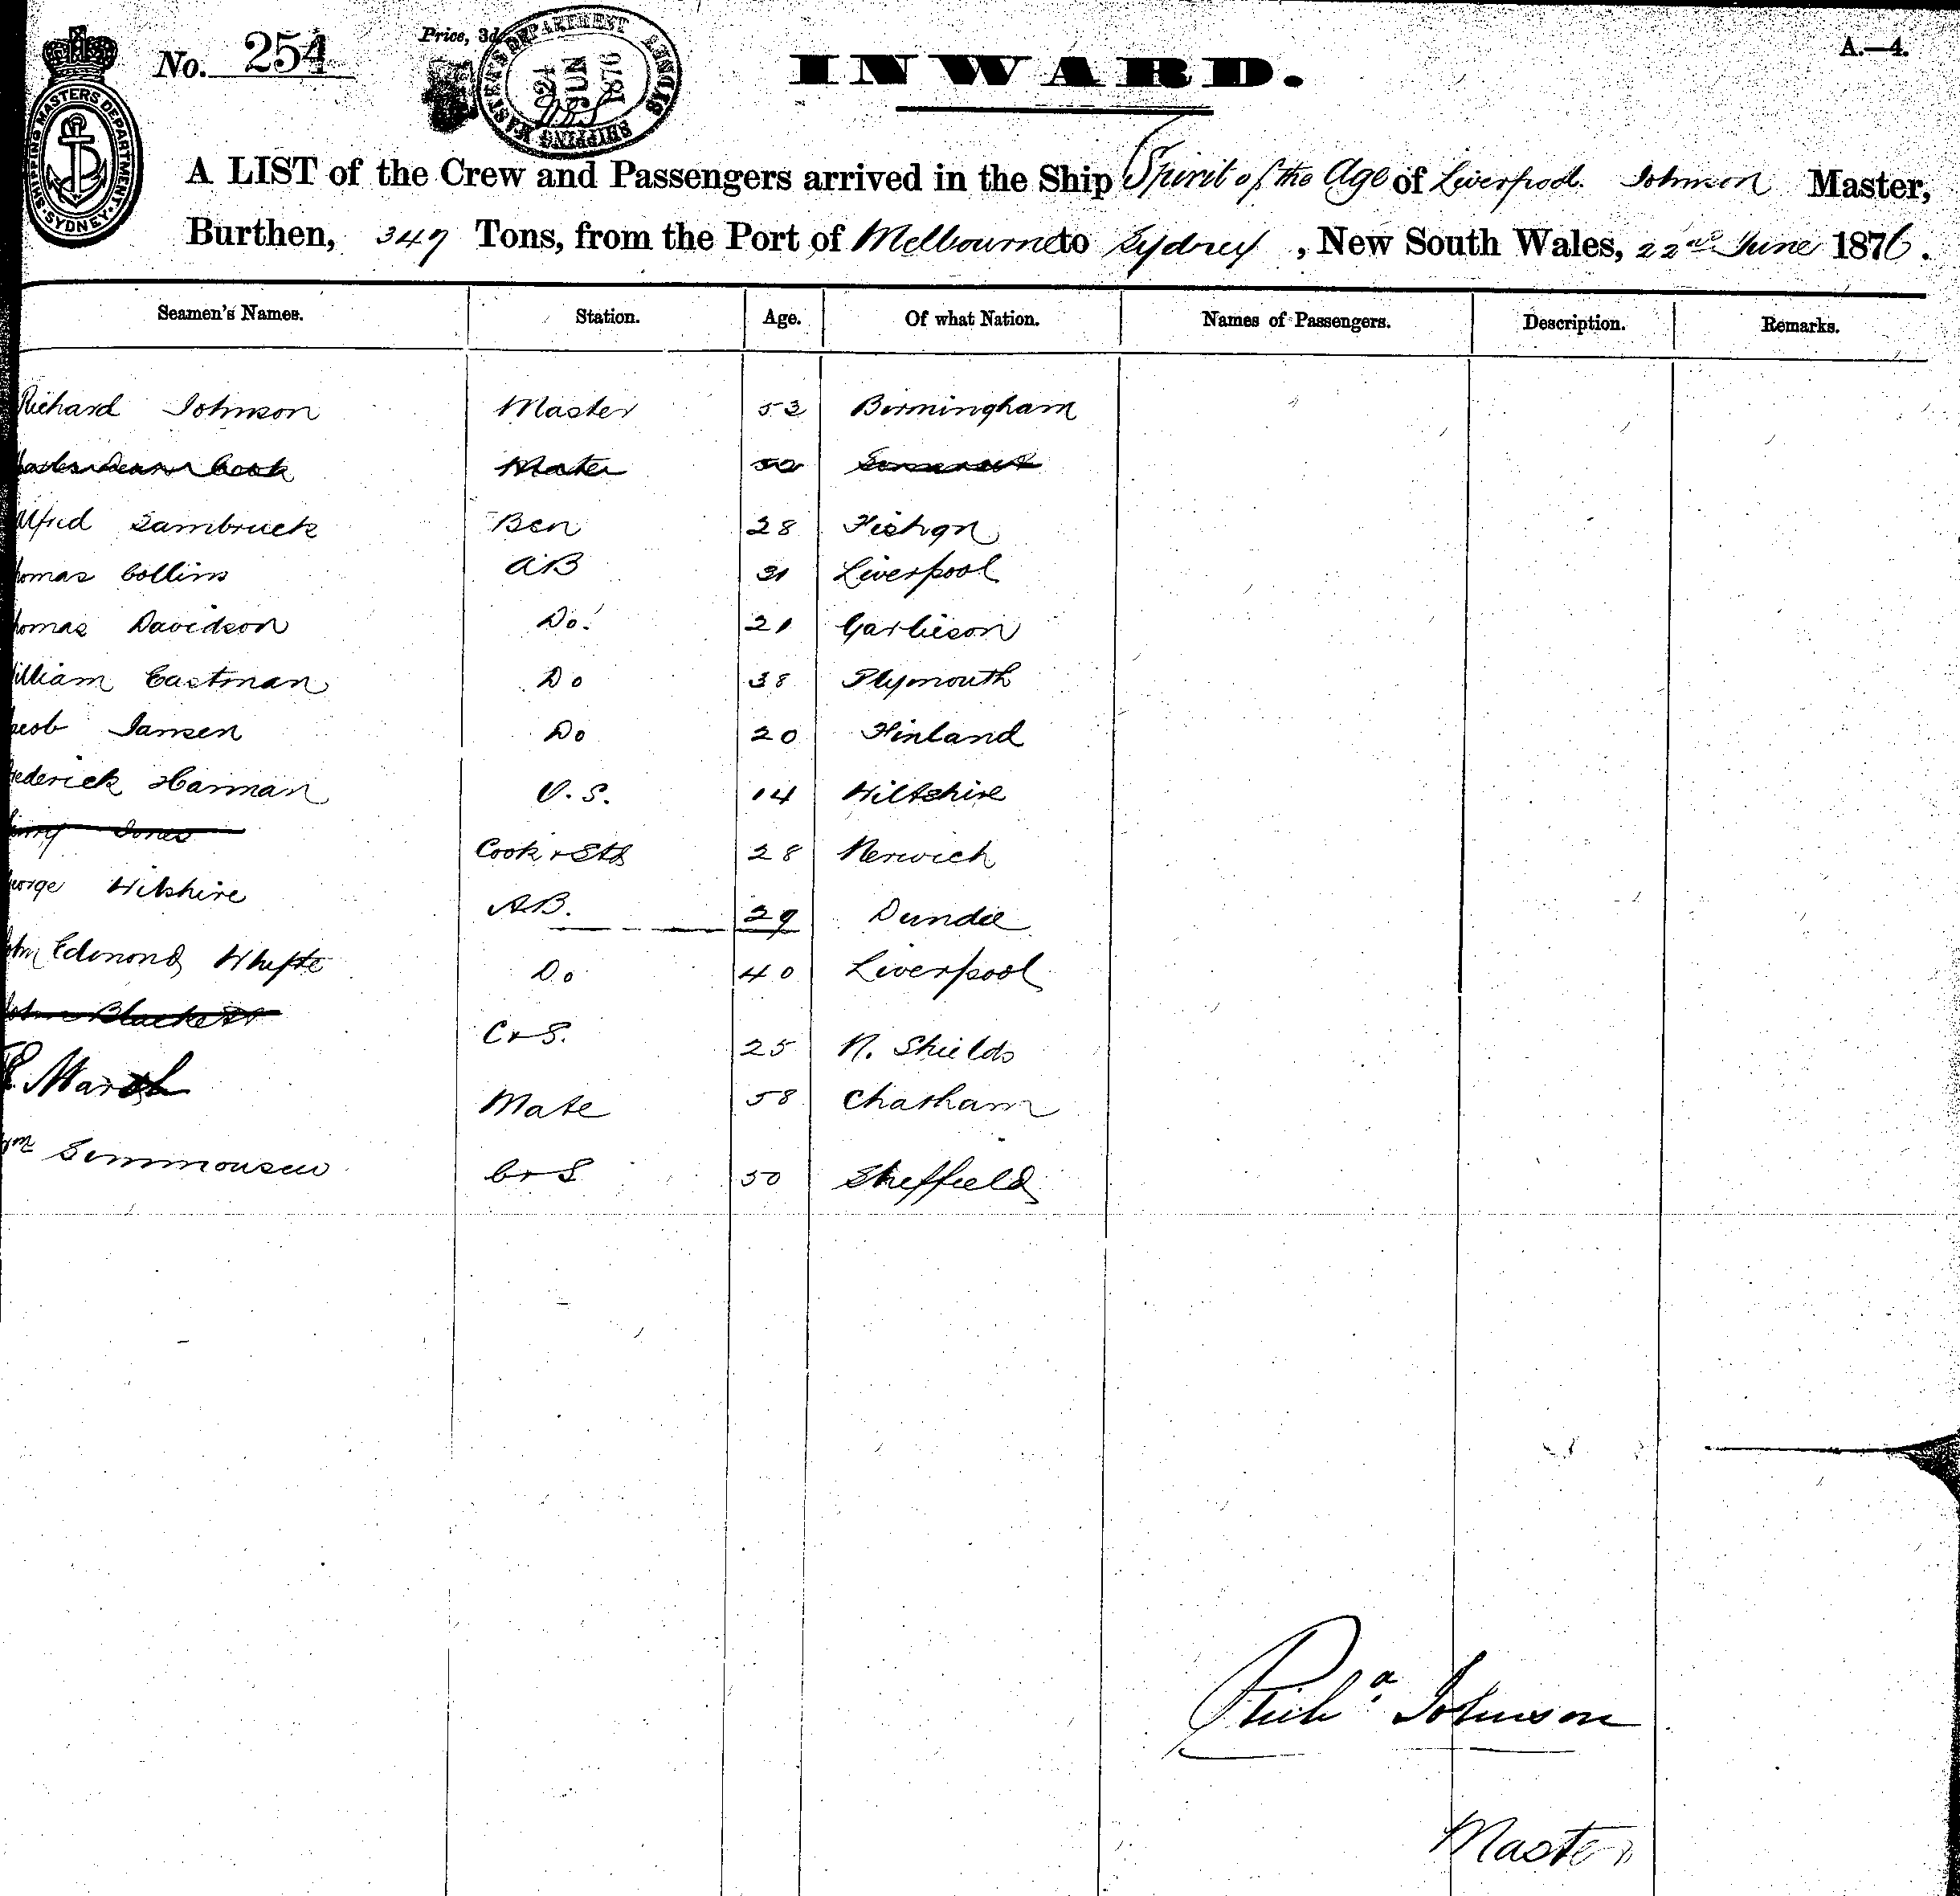 No. 254
Price, 3d.
SHIPPING MASTER'S DEPARTMENT SYDNEY
24 JUN 1876
INWARD.
A.—4.
SHIPPING MASTERS DEPARTMENT SYDNEY
A LIST of the Crew and Passengers arrived in the Ship Spirit of the Age of Liverpool. Johnson Master,
Burthen, 347 Tons, from the Port of Melbourne to Sydney, New South Wales, 22nd June 1876.
Seamen's Names. Station. Age. Of what Nation. Names of Passengers. Description. Remarks.
Richard Johnson Master 53 Birmingham
Cook Mate 50 Somerset
Alfred Sambruck Bsn 28
homas Collins AB 31 Liverpool
homas Davidson Do. 21 Garlieson
illiam Eastman Do 38 Plymouth
acob Jansen Do 20 Finland
rederick Harman O.S. 14 Wiltshire
enry Jones Cook & Std 28 Norwich
eorge Wilshire AB. 29 Dundee
ohn Edmond Whyte Do 40 Liverpool
ohn Blackett C & S. 25 N. Shields
Marsh Mate 58 Chatham
Wm Simmonsen C & S 50 Sheffield
Richd. Johnson
Master